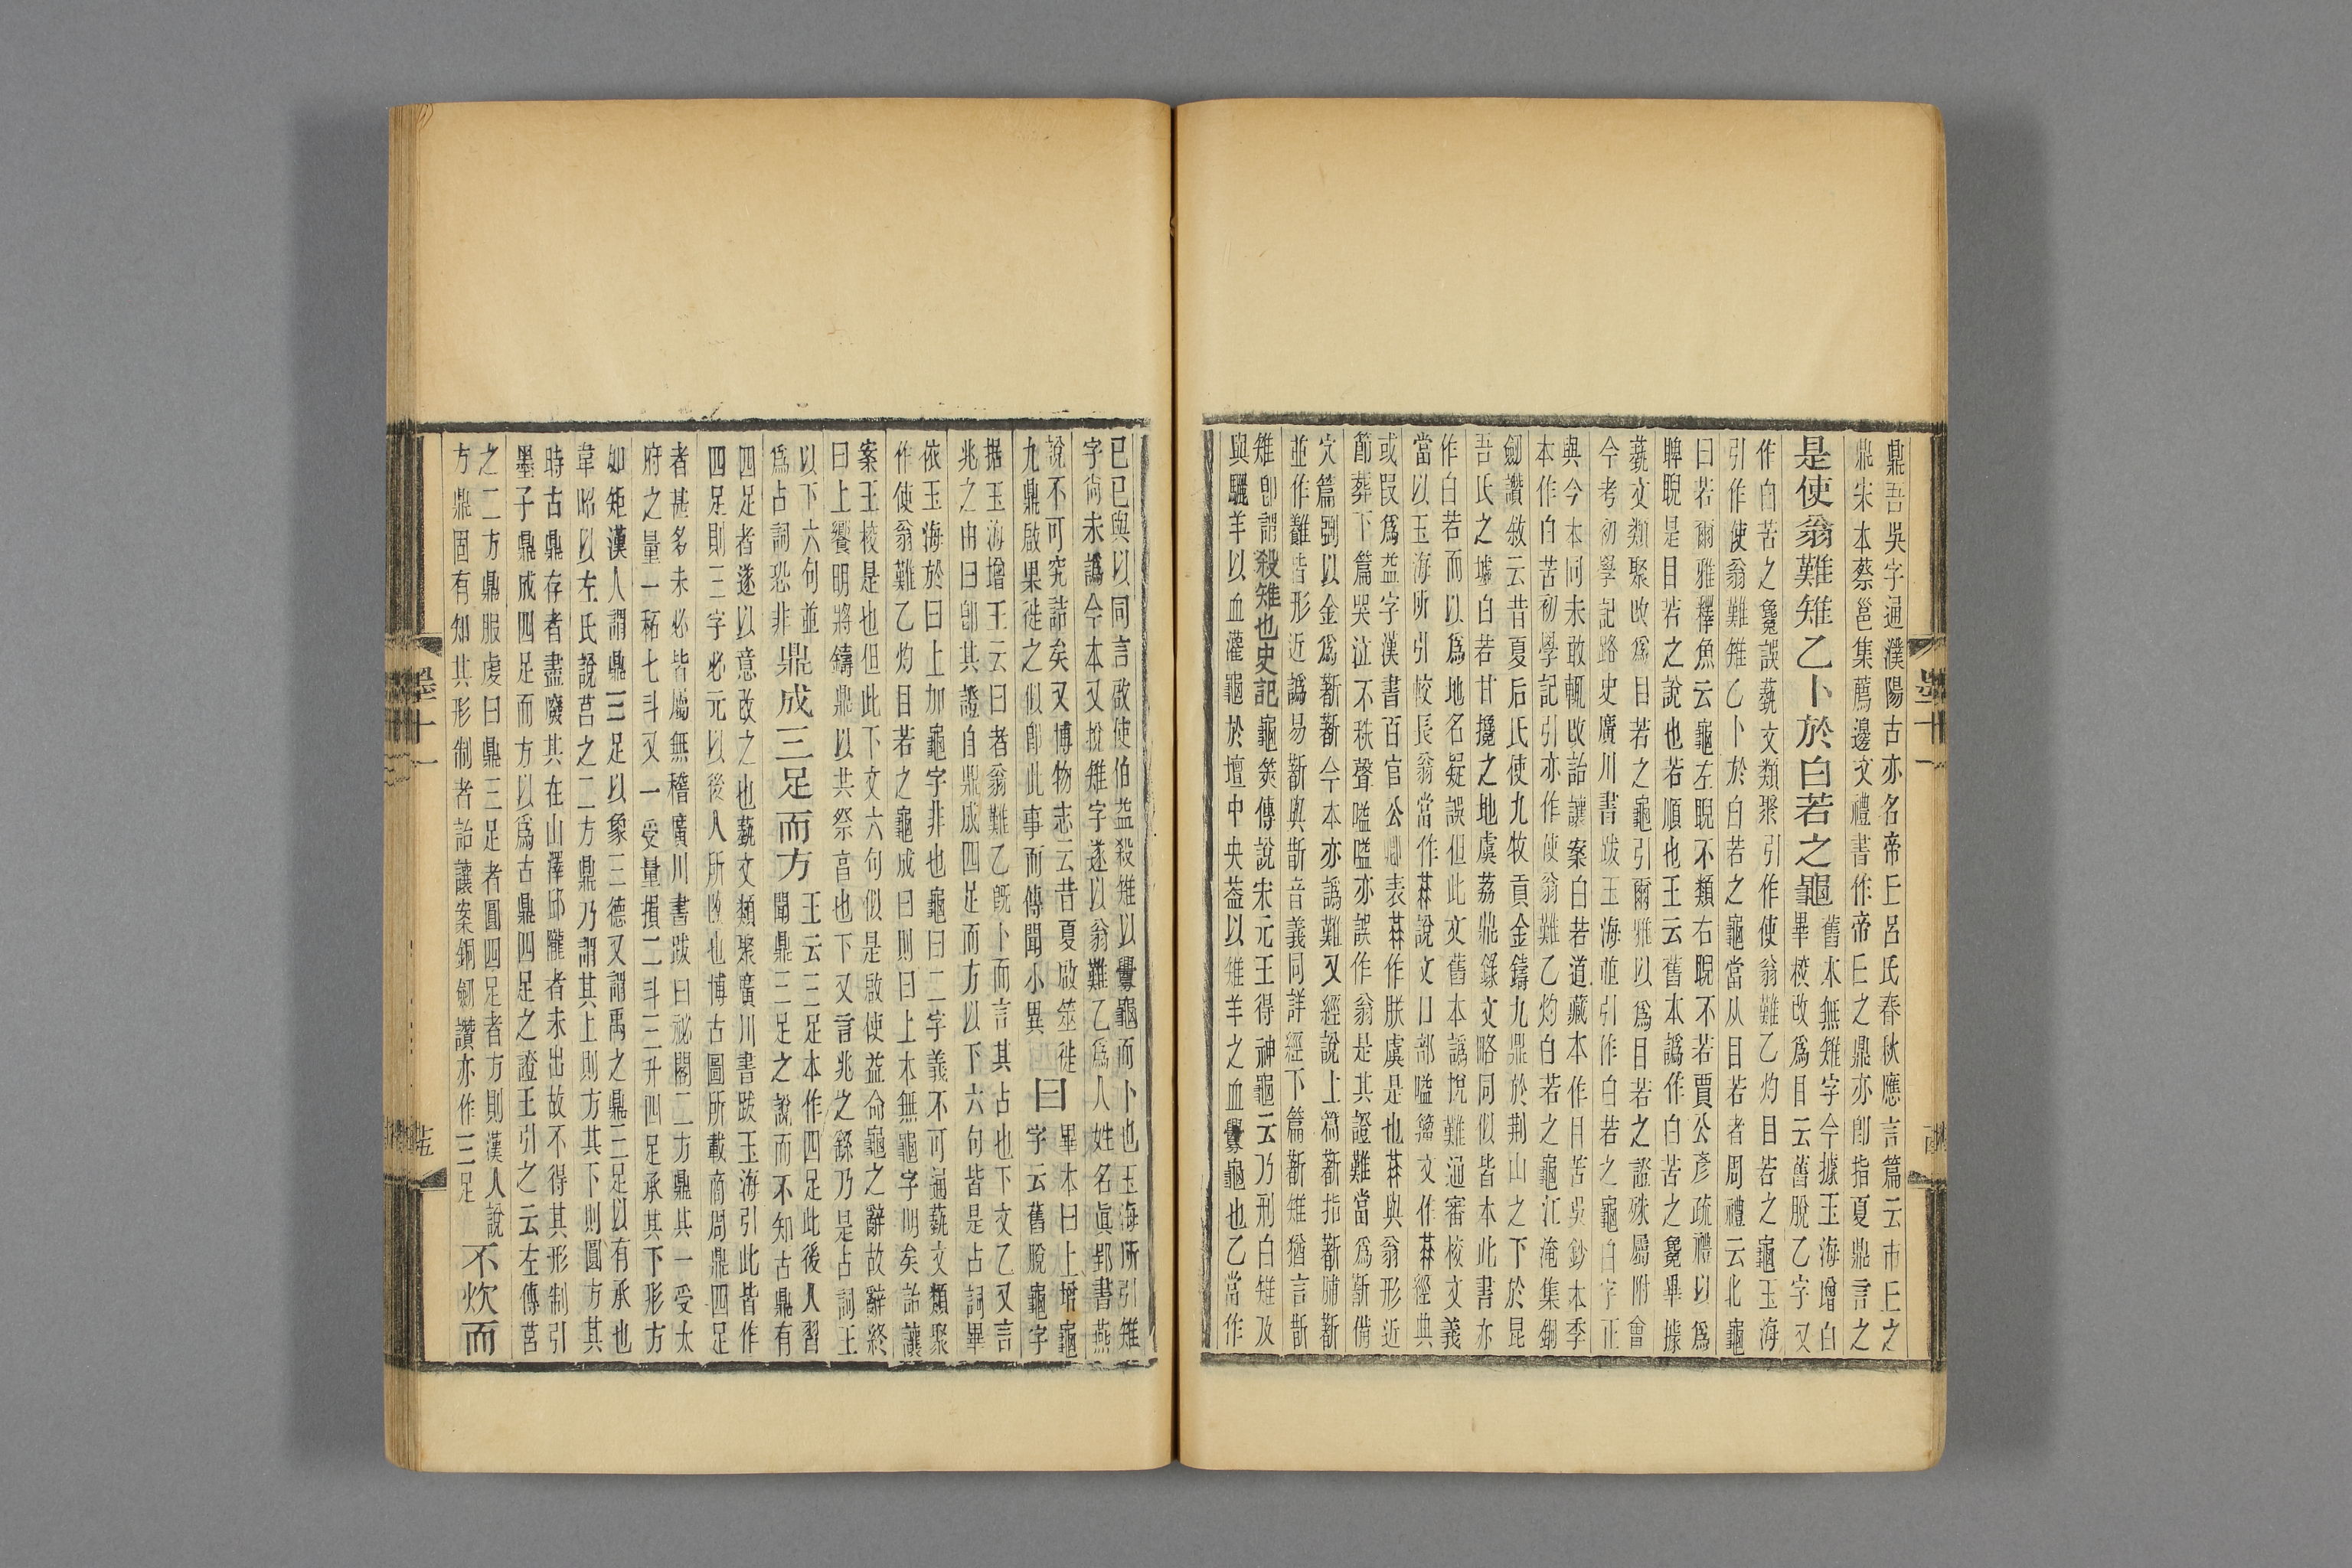 鼎吾吳字通濮陽古亦名帝王呂氏春秋應言篇云市王之
鼎宋本蔡邕集薦邊文禮書作帝王之鼎亦卽指夏鼎言之
是使翁難雉乙卜於白若之龜
舊本無雉字今據玉海增白
畢校改爲目云舊脫乙字又
作白苦之龜誤藝文類聚引作使翁難乙灼目若之龜玉海
引作使翁難雉乙卜於白若之龜當从目若者周禮云北龜
曰若爾雅釋魚云龜左睨不類右睨不若賈公彥疏禮以爲
睥睨是目若之說也若順也王云舊本譌作白苦之龜畢據
藝文類聚改爲目若之龜引爾雅以爲目若之證殊屬附會
今考初學記路史廣川書跋玉海並引作白若之龜白字正
與今本同未敢輒改詒讓案白若道藏本作目苦吳鈔本季
本作白苦初學記引亦作使翁難乙灼白若之龜江淹集銅
劒讚敘云昔夏后氏使九牧貢金鑄九鼎於荆山之下於昆
吾氏之墟白若甘攙之地虞荔鼎錄文略同似皆本此書亦
作白若而以爲地名疑誤但此文舊本譌挩難通審校文義
當以玉海所引校長翁當作𦵧說文口部嗌籒文作𦵧經典
或叚爲益字漢書百官公卿表𦵧作朕虞是也𦵧與翁形近
節葬下篇哭泣不秩聲嗌嗌亦誤作翁是其證難當爲斳備
穴篇劉以金爲斳斳今本亦譌難又經說上篇斳指斳脯斳
並作難皆形近譌易斳與斮音義同詳經下篇斳雉猶言斮
雉卽謂殺雉也史記龜筴傳說宋元王得神龜云乃刑白雉及
與驪羊以血灌龜於壇中央葢以雉羊之血釁龜也乙當作
已已與以同言啟使伯益殺雉以釁龜而卜也玉海所引雉
字尙未譌今本又挩雉字遂以翁難乙爲人姓名眞郢書燕
說不可究詰矣又博物志云昔夏啟筮徙
九鼎啟果徙之似卽此事而傳聞小異
曰
畢本曰上增龜
字云舊脫龜字
据玉海增王云曰者翁難乙旣卜而言其占也下文乙又言
兆之由曰卽其證自鼎成四足而方以下六句皆是占詞畢
依玉海於曰上加龜字非也龜曰二字義不可通藝文類聚
作使翁難乙灼目若之龜成曰則曰上本無龜字明矣詒讓
案王校是也但此下文六句似是啟使益命龜之辭故辭終
曰上饗明將鑄鼎以共祭言也下又言兆之繇乃是占詞王
以下六句並
爲占詞恐非
鼎成三足而方
王云三足本作四足此後人習
聞鼎三足之說而不知古鼎有
四足者遂以意改之也藝文類聚廣川書跋玉海引此皆作
四足則三字必元以後人所改也博古圖所載商周鼎四足
者甚多未必皆屬無稽廣川書跋曰祕閣二方鼎其一受太
府之量一秳七斗又一受量損二斗三升四足承其下形方
如矩漢人謂鼎三足以象三德又謂禹之鼎三足以有承也
韋昭以左氏說莒之二方鼎乃謂其上則方其下則圓方其
時古鼎存者盡廢其在山澤邱隴者未出故不得其形制引
墨子鼎成四足而方以爲古鼎四足之證王引之云左傳莒
之二方鼎服虔曰鼎三足者圓四足者方則漢人說
方鼎固有知其形制者詒讓案銅劒讚亦作三足
不炊而
墨十一
墨十一